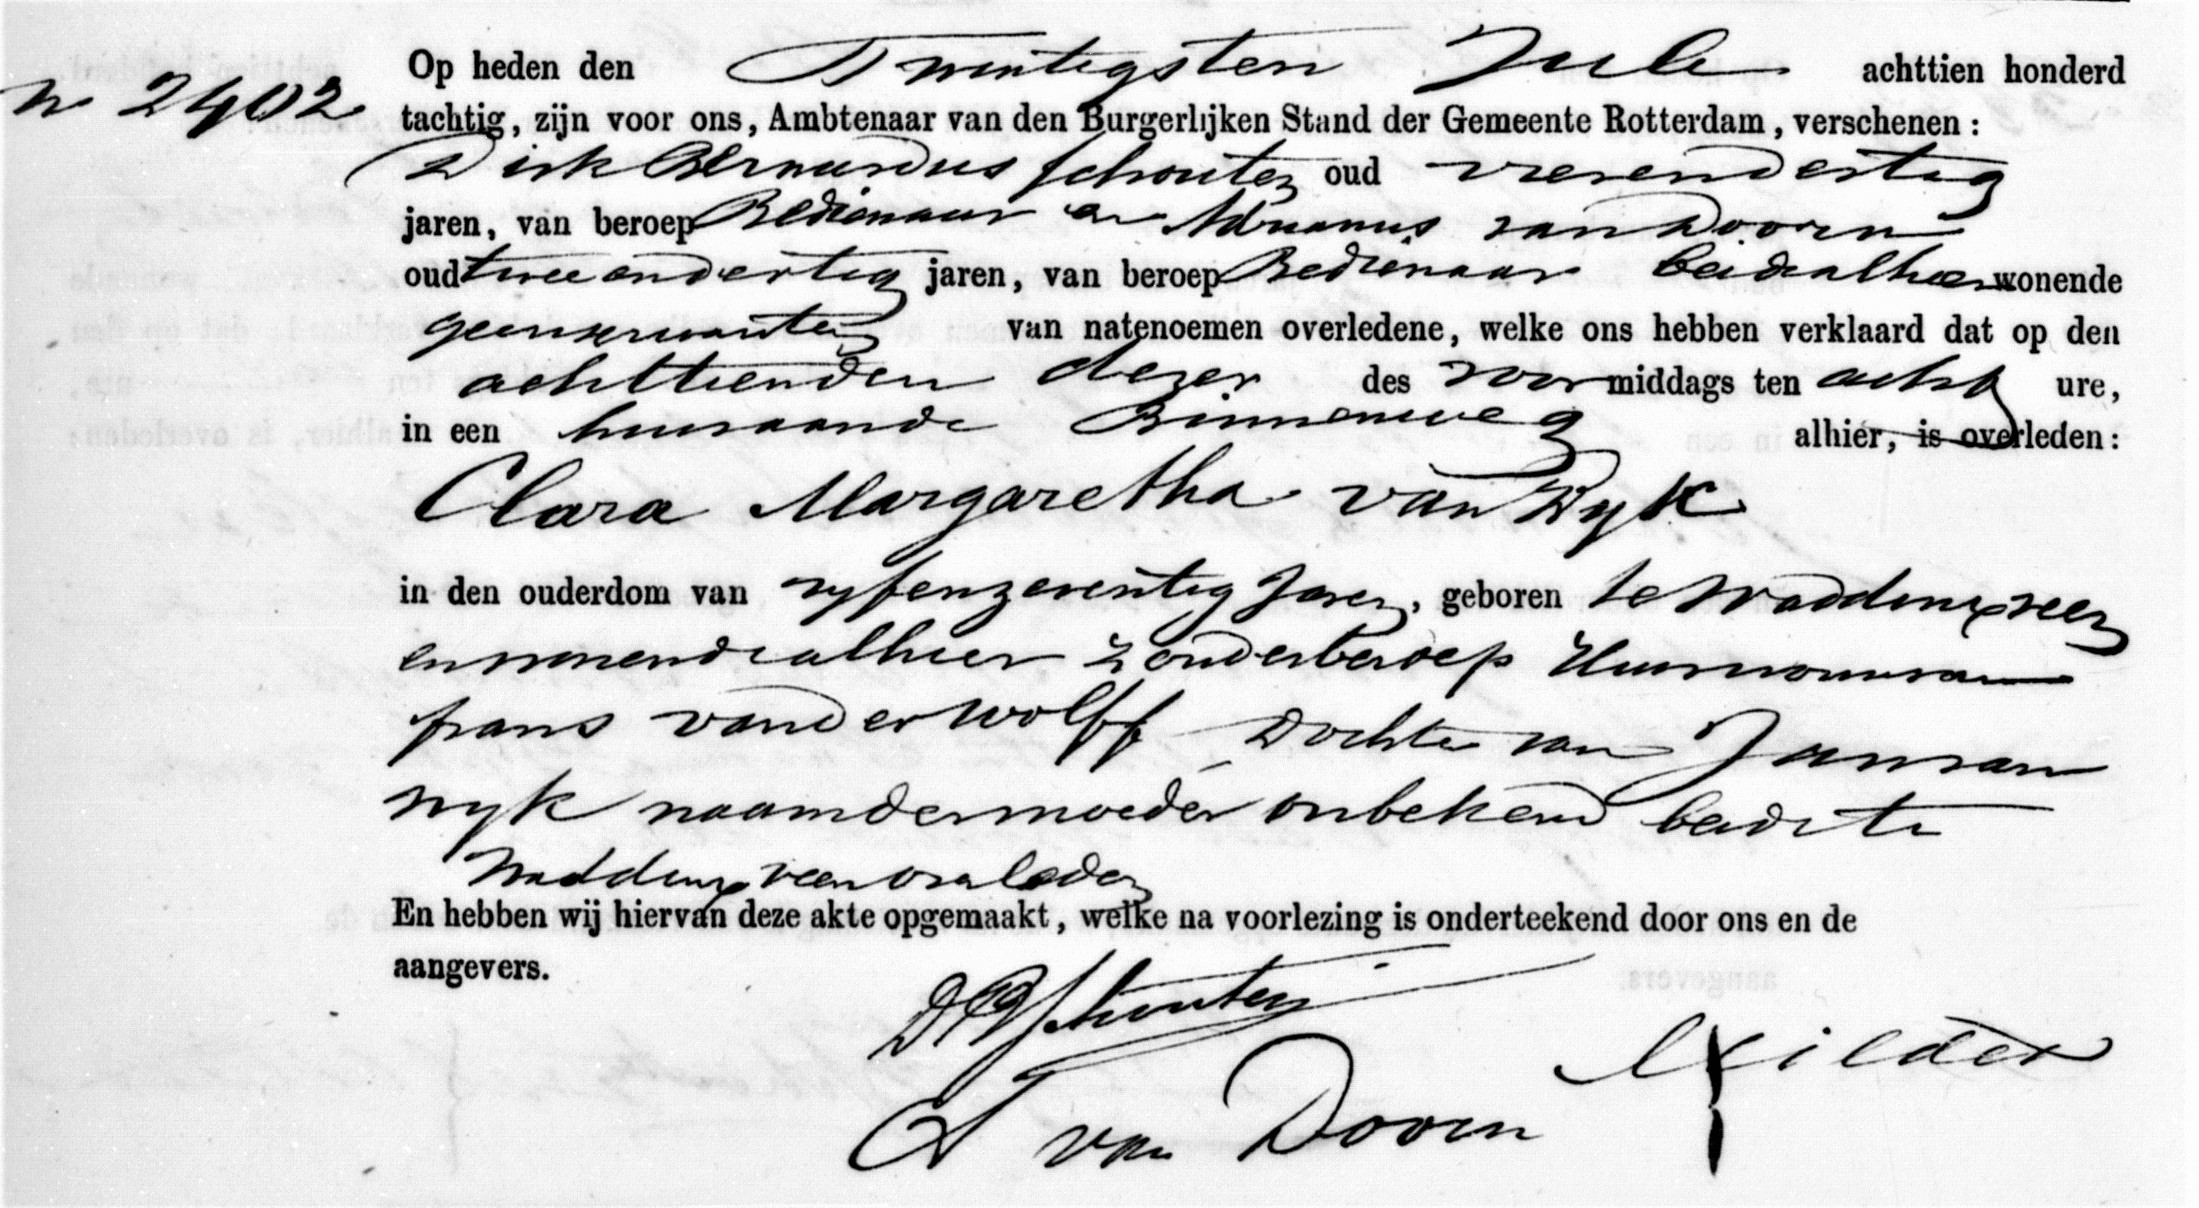 Op heden den Twintigsten Juli achttien honderd
No 2402 tachtig, zijn voor ons, Ambtenaar van den Burgerlijken Stand der Gemeente Rotterdam, verschenen:
Dirk Bernardus Schouten oud vierendertig
jaren, van beroep Bedienaar en Adrianus van Doorn
oud tweeendertig jaren, van beroep Bedienaar beide alhier wonende
geenverwanten van natenoemen overledene, welke ons hebben verklaard dat op den
achttienden dezer des voormiddags ten acht ure,
in een huis aande Binnenweg alhier, is overleden:
Clara Margaretha van Dyk
in den ouderdom van vyfenzeventig Jaren, geboren te Waddinxveen
en wonende alhier zonder beroep Huisvrouw van
frans van der Wolff Dochter van Jan van
Dyk naam der moeder onbekend beide te
Waddinxveen overleden
En hebben wij hiervan deze akte opgemaakt, welke na voorlezing is onderteekend door ons en de
aangevers.
DB Schouten
A van Doorn